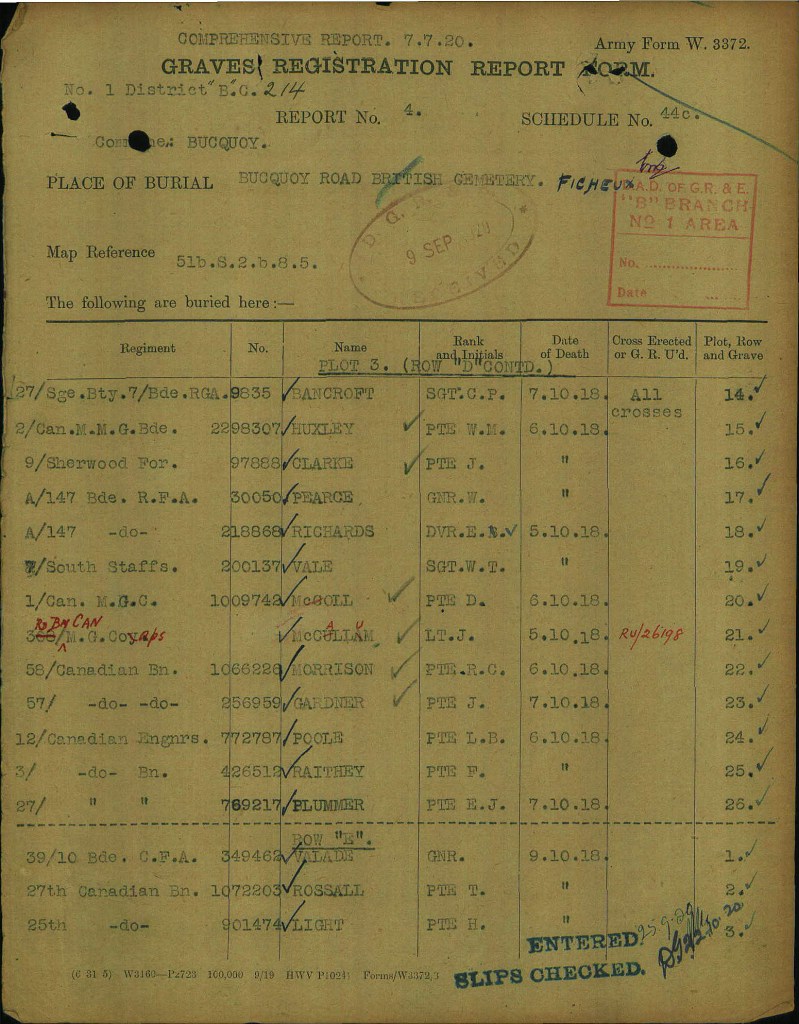 COMPREHENSIVE REPORT. 7.7.20.
Army Form W. 3372.
GRAVES REGISTRATION REPORT FORM.
No. 1 District "B.C. 214
REPORT No. 4.
SCHEDULE No. 44c.
Commune: BUCQUOY.
PLACE OF BURIAL BUCQUOY ROAD BRITISH CEMETERY. FICHEUX
A.D. OF G.R. & E.
"B" BRANCH
No 1 AREA
No.
Date
9 SEP
Map Reference 51b.S.2.b.8.5.
The following are buried here:—
Regiment No. Name Rank and Initials Date of Death Cross Erected or G. R. U'd. Plot, Row and Grave
PLOT 3. (ROW "D" CONTD.)
27/Sge.Bty.7/Bde.RGA. 9835 BANCROFT SGT.C.P. 7.10.18. All crosses 14.
2/Can.M.M.G.Bde. 2298307 HUXLEY PTE W.M. 6.10.18. 15.
9/Sherwood For. 97888 CLARKE PTE J. " 16.
A/147 Bde. R.F.A. 30050 PEARCE GNR.W. " 17.
A/147 -do- 218868 RICHARDS DVR.E. 5.10.18. 18.
7/South Staffs. 200137 VALE SGT.W.T. " 19.
1/Can. M.G.C. 1009742 McCOLL PTE D. 6.10.18. 20.
BN CAN
/M.G. Corps McCALLUM LT.J. 5.10.18. RU/26198 21.
58/Canadian Bn. 1066226 MORRISON PTE.R.C. 6.10.18. 22.
57/ -do- -do- 256959 GARDNER PTE J. 7.10.18. 23.
12/Canadian Engnrs. 772787 POOLE PTE L.B. 6.10.18. 24.
3/ -do- Bn. 426512 RAITHEY PTE F. " 25.
27/ " " 769217 PLUMMER PTE E.J. 7.10.18. 26.
ROW "E".
39/10 Bde. C.F.A. 349462 VALADE GNR. 9.10.18. 1.
27th Canadian Bn. 1072203 ROSSALL PTE T. " 2.
25th -do- 901474 LIGHT PTE H. " 3.
ENTERED
SLIPS CHECKED.
(6 31 5) W3160—P2723 100,000 9/19 HWV P1024 Forms/W3372/3